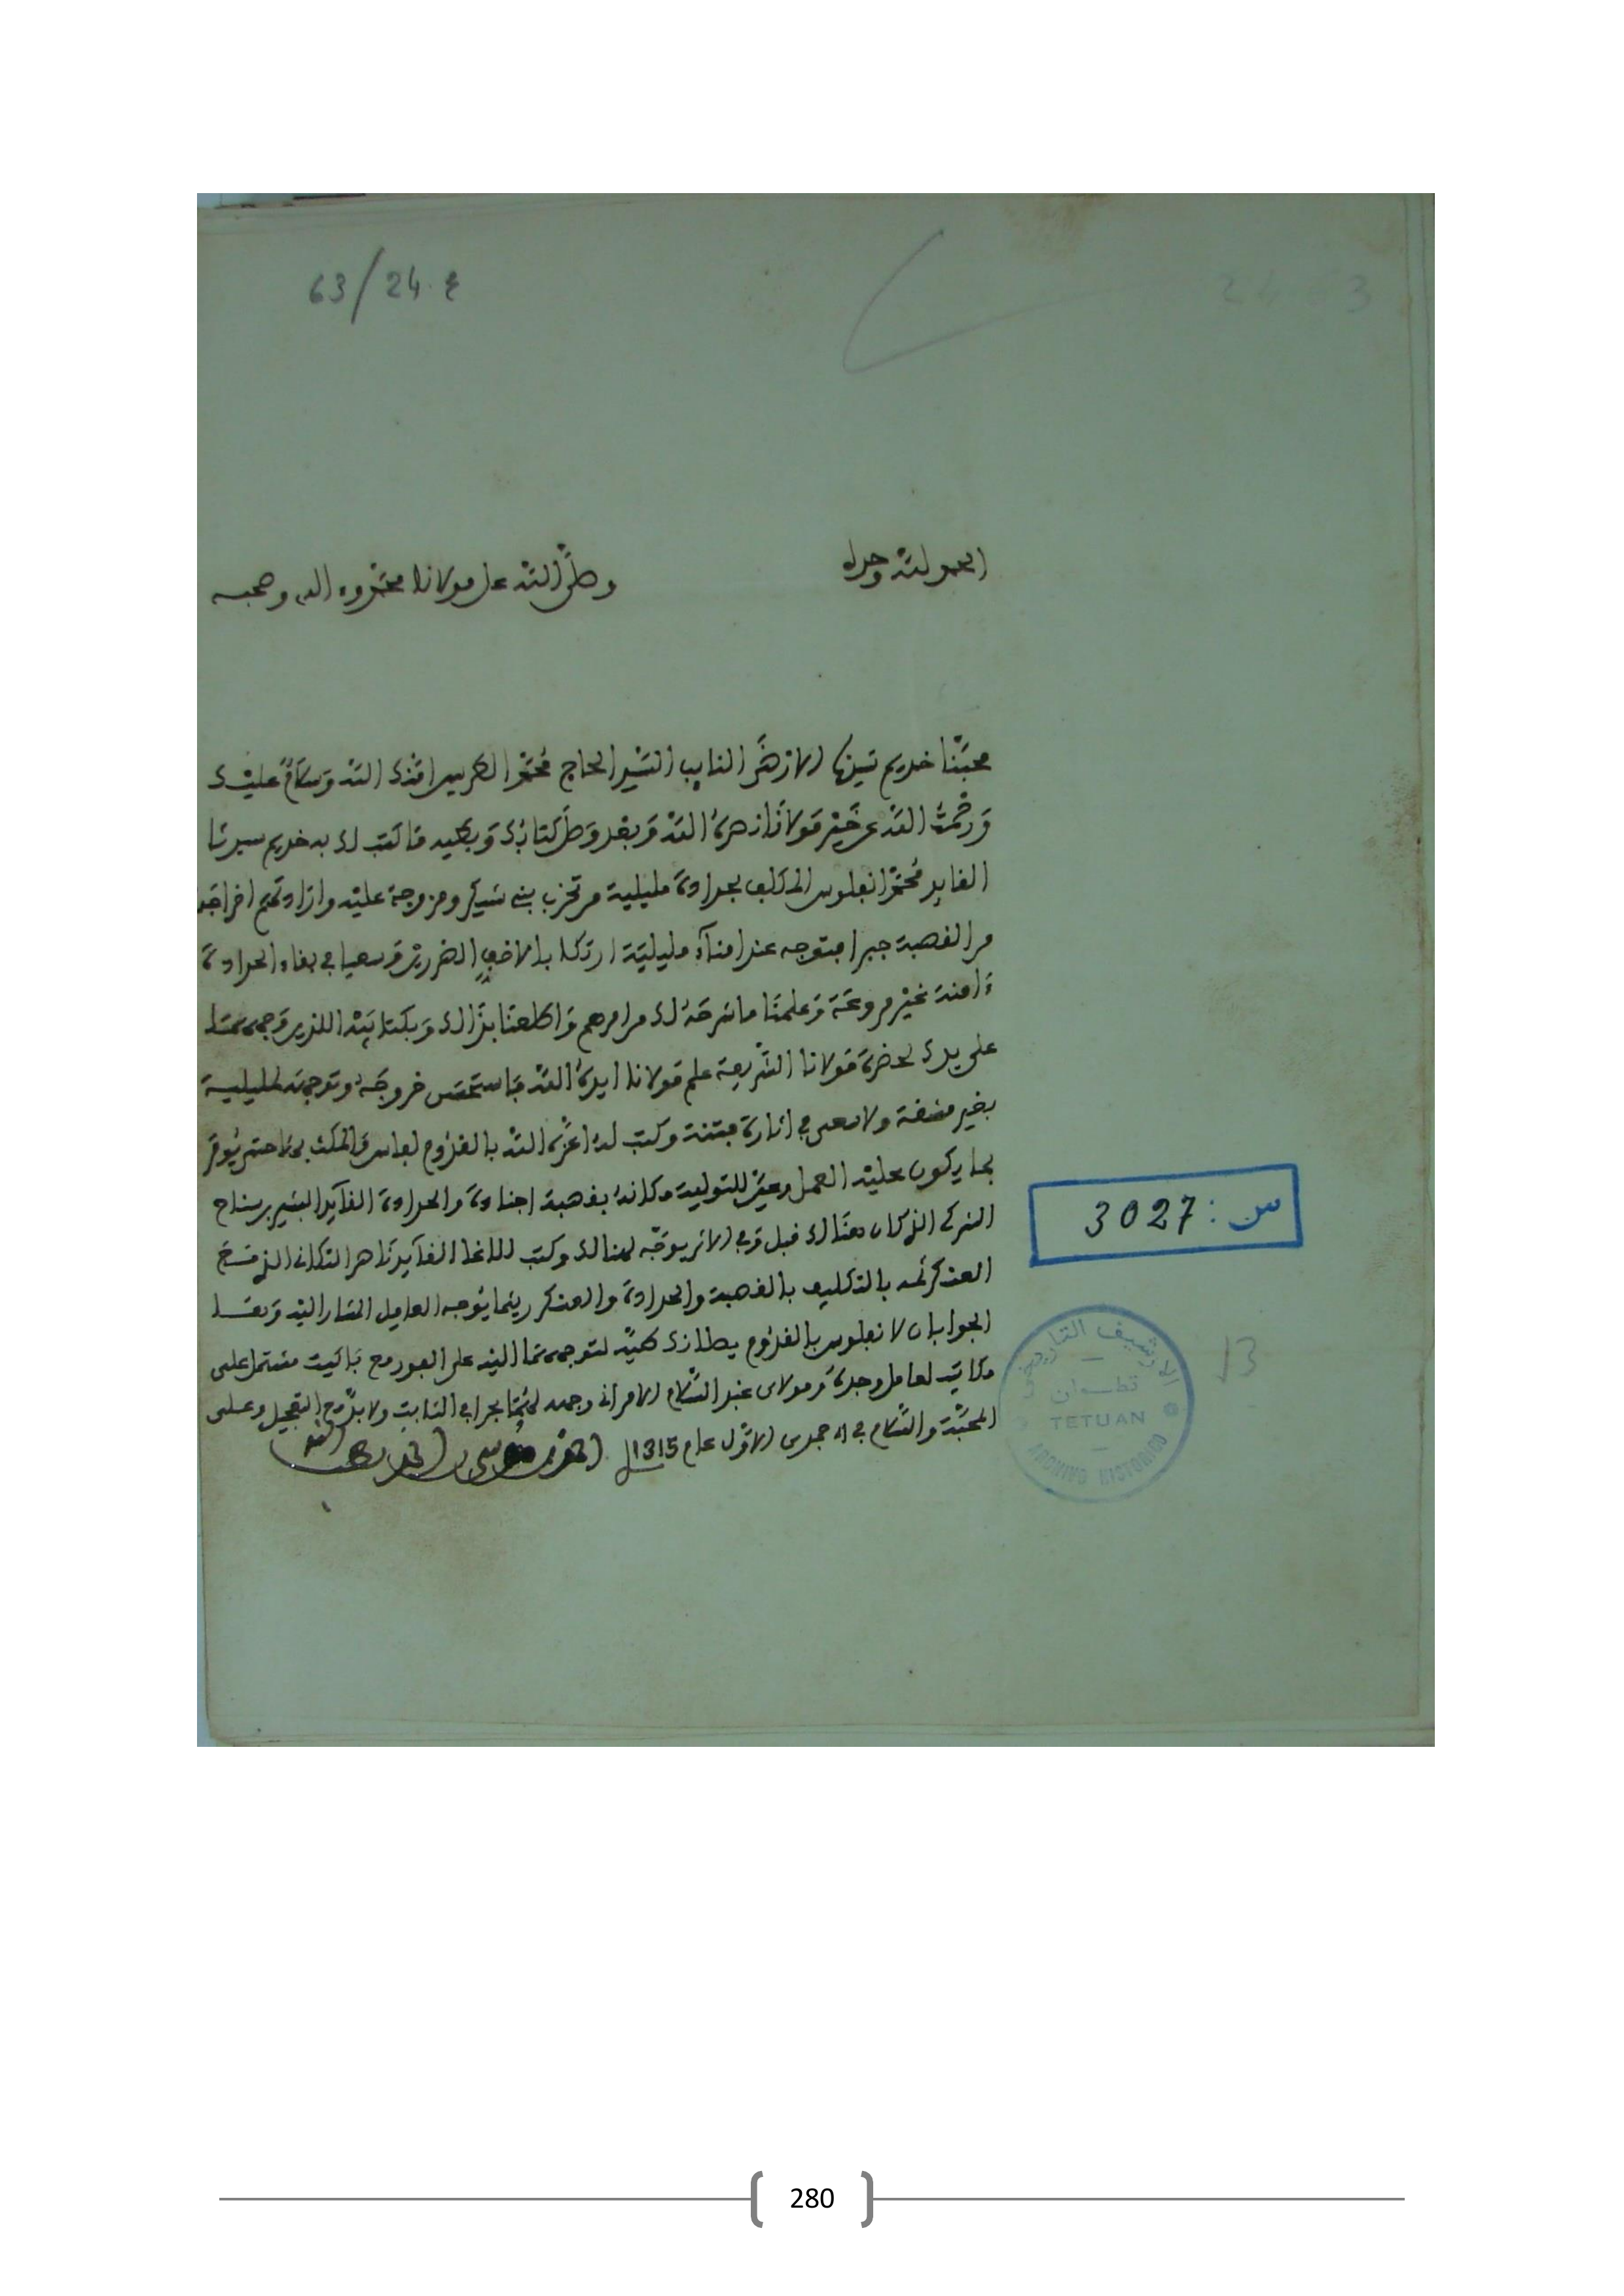 63/24.ع
24 63
الحمد لله وحده
وصلى الله على مولانا محمد وءاله وصحبه
محبنا خديم سيدنا الأرضى النايب السيد الحاج محمد الطريس امنك الله وسلام عليك
ورحمت الله عن خير مولانا نصره الله وبعد وصل كتابك وبطيه ما كتب لك به خديم سيدنا
القايد محمد انفلوس المكلف بحدادة مليلية من تحزب بني شيكر ومزوجة عليه وارادتهم اخراجه
من القصبة جبرا فتوجه عند امناء مليلية ارتكابا لاخف الضررين وسعيا في بقاء الحدادة
ءامنة غير مروعة وعلمنا ما شرحه لك من امرهم واطلعنا بذالك وبكتابيه اللذين وجههما
على يدك لحضرة مولانا الشريفة علم مولانا ايده الله فاستحسن خروجه وتوجهه لمليلية
بغير مشقة ولا سعي في اثارة فتنة وكتب له اعزه الله بالقدوم لفاس والمكث بها حتى يومر
بما يكون عليه العمل وعين للتولية مكانه بقصبة اجنادة والحدادة القايد البشير بن سناح
الذي كان هنالك قبل وفي الاثر يوجه لهنالك وكتب للاغا القايد
العسكر بالتكليف بالقصبة والحدادة والعسكر ريثما يتوجه العامل المشار اليه وبعد
الجوابان لانفلوس بالقدوم يصلانك طيه لتوجههما اليه على الفور مع باكيت مشتمل على
مكاتيب لعامل وجدة ومولاي عبد السلام الامراني وجهه لهما بحرا في الثابت ولا بد مع التعجيل وعلى
المحبة والسلام في 11 جمدى الاول عام 1315
احمد بن موسى بن احمد لطف الله به
س : 3027
13
الأرشيف التاريخي
تطوان
TETUAN
ARCHIVO HISTORICO
280